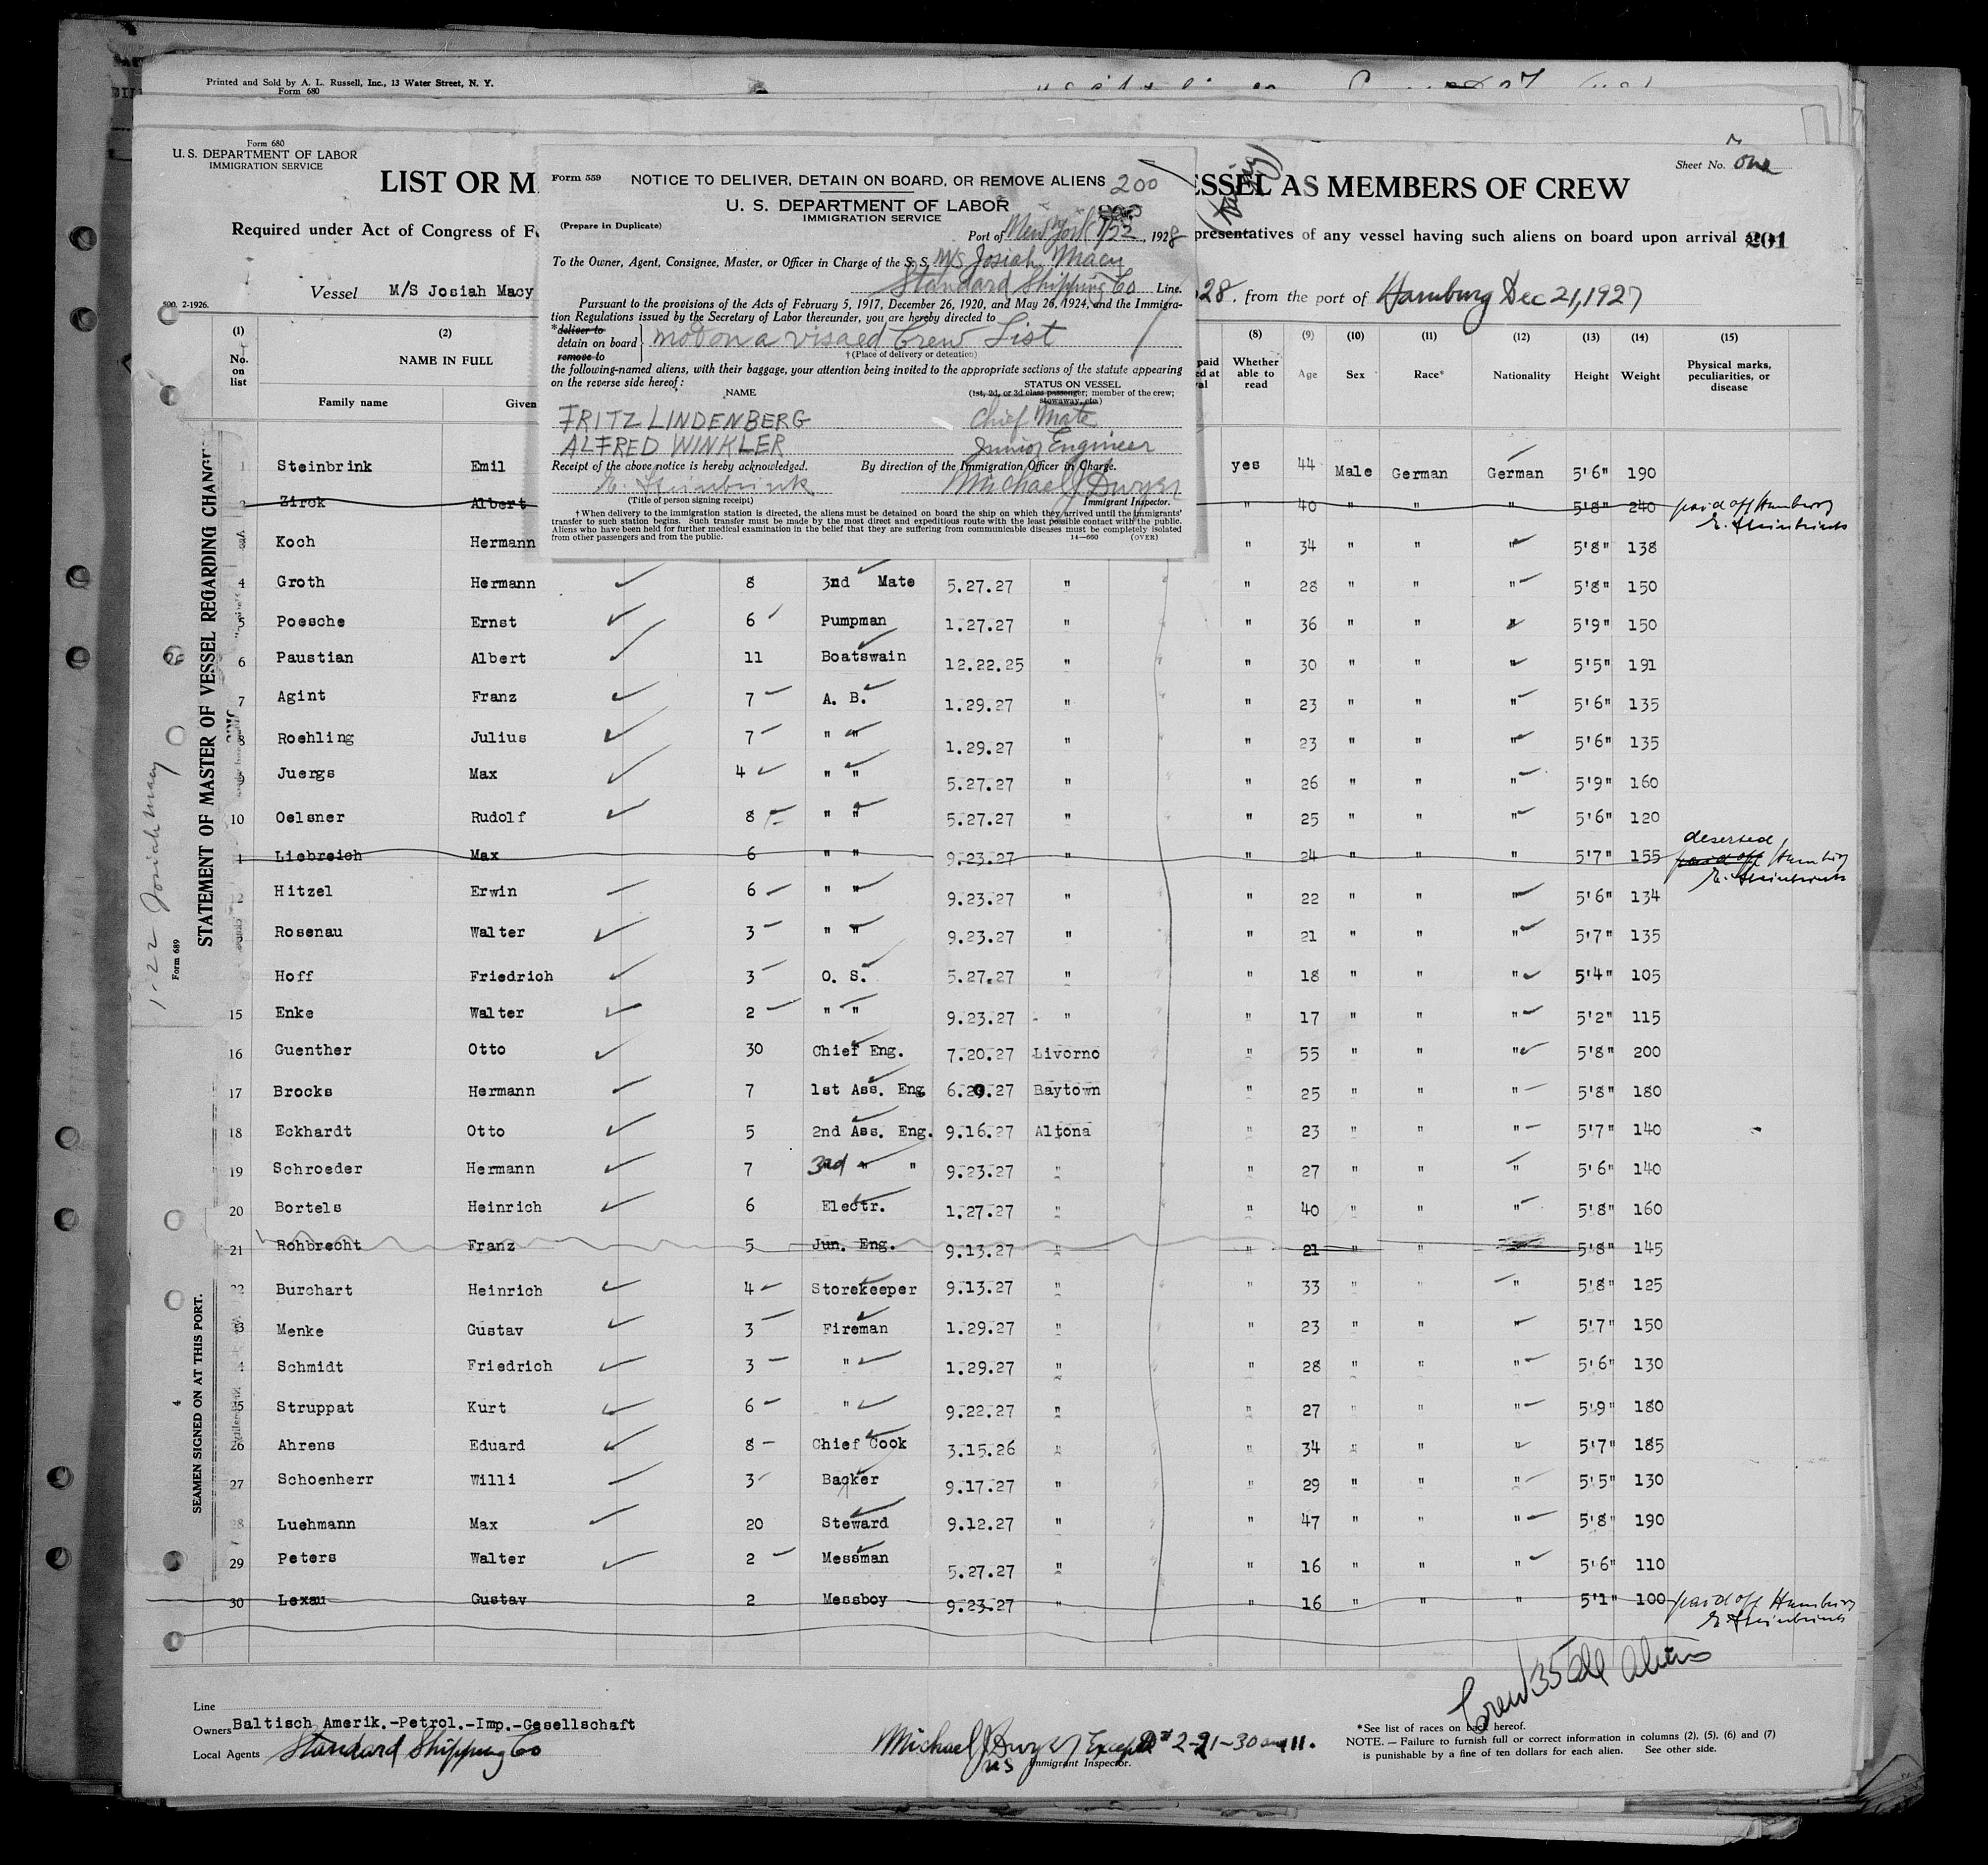 Printed and Sold by A. L. Russell, Inc., 13 Water Street, N. Y.
Form 680
Form 680
U. S. DEPARTMENT OF LABOR
IMMIGRATION SERVICE
Sheet No. One
LIST OR MA
ESSEL AS MEMBERS OF CREW
Required under Act of Congress of Fe
presentatives of any vessel having such aliens on board upon arrival
201
Vessel M/S Josiah Macy
28, from the port of Hamburg Dec 21, 1927
Form 559
NOTICE TO DELIVER, DETAIN ON BOARD, OR REMOVE ALIENS 200
U. S. DEPARTMENT OF LABOR
IMMIGRATION SERVICE
(Prepare in Duplicate)
Port of New York 1/22, 1928
To the Owner, Agent, Consignee, Master, or Officer in Charge of the S. S. M/S Josiah Macy
Standard Shipping Co Line.
Pursuant to the provisions of the Acts of February 5, 1917, December 26, 1920, and May 26, 1924, and the Immigra-
tion Regulations issued by the Secretary of Labor thereunder, you are hereby directed to
*deliver to
detain on board } not on a visaed Crew List
remove to
†(Place of delivery or detention)
the following-named aliens, with their baggage, your attention being invited to the appropriate sections of the statute appearing
on the reverse side hereof:
NAME
STATUS ON VESSEL
(1st, 2d, or 3d class passenger; member of the crew;
stowaway, etc.)
FRITZ LINDENBERG Chief Mate
ALFRED WINKLER Junior Engineer
Receipt of the above notice is hereby acknowledged. By direction of the Immigration Officer in Charge.
E. Steinbrink Michael J Dwyer
(Title of person signing receipt) Immigrant Inspector.
†When delivery to the immigration station is directed, the aliens must be detained on board the ship on which they arrived until the immigrants'
transfer to such station begins. Such transfer must be made by the most direct and expeditious route with the least possible contact with the public.
Aliens who have been held for further medical examination in the belief that they are suffering from communicable diseases must be completely isolated
from other passengers and from the public. 14—660 (OVER)
(1) (2) (8) (9) (10) (11) (12) (13) (14) (15)
No. on list
NAME IN FULL
Family name Given
Whether able to read
Age
Sex
Race*
Nationality
Height
Weight
Physical marks, peculiarities, or disease
1 Steinbrink Emil yes 44 Male German German 5'6" 190
2 Zirck Albert " 40 " " " 5'8" 240 paid off Hamburg
E. Steinbrink
Koch Hermann " 34 " " " 5'8" 138
4 Groth Hermann 8 3nd Mate 5.27.27 " " 28 " " " 5'8" 150
5 Poesche Ernst 6 Pumpman 1.27.27 " " 36 " " " 5'9" 150
6 Paustian Albert 11 Boatswain 12.22.25 " " 30 " " " 5'5" 191
7 Agint Franz 7 A. B. 1.29.27 " " 23 " " " 5'6" 135
8 Roehling Julius 7 " " 1.29.27 " " 23 " " " 5'6" 135
9 Juergs Max 4 " " 5.27.27 " " 26 " " " 5'9" 160
10 Oelsner Rudolf 8 " " 5.27.27 " " 25 " " " 5'6" 120
1 Liebreich Max 6 " " 9.23.27 " " 24 " " " 5'7" 155 deserted
paid off Hamburg
E. Steinbrink
2 Hitzel Erwin 6 " " 9.23.27 " " 22 " " " 5'6" 134
Rosenau Walter 3 " " 9.23.27 " " 21 " " " 5'7" 135
Hoff Friedrich 3 O. S. 5.27.27 " " 18 " " " 5'4" 105
15 Enke Walter 2 " " 9.23.27 " " 17 " " " 5'2" 115
16 Guenther Otto 30 Chief Eng. 7.20.27 Livorno " 55 " " " 5'8" 200
17 Brocks Hermann 7 1st Ass. Eng 6.20.27 Baytown " 25 " " " 5'8" 180
18 Eckhardt Otto 5 2nd Ass. Eng. 9.16.27 Altona " 23 " " " 5'7" 140
19 Schroeder Hermann 7 3rd " " 9.23.27 " " 27 " " " 5'6" 140
20 Bortels Heinrich 6 Electr. 1.27.27 " " 40 " " " 5'8" 160
21 Rohbrecht Franz 5 Jun. Eng. 9.13.27 " " 21 " " " 5'8" 145
22 Burchart Heinrich 4 Storekeeper 9.13.27 " " 33 " " " 5'8" 125
3 Menke Gustav 3 Fireman 1.29.27 " " 23 " " " 5'7" 150
4 Schmidt Friedrich 3 " 1.29.27 " " 28 " " " 5'6" 130
5 Struppat Kurt 6 " 9.22.27 " " 27 " " " 5'9" 180
26 Ahrens Eduard 8 Chief Cook 3.15.26 " " 34 " " " 5'7" 185
27 Schoenherr Willi 3 Backer 9.17.27 " " 29 " " " 5'5" 130
28 Luehmann Max 20 Steward 9.12.27 " " 47 " " " 5'8" 190
29 Peters Walter 2 Messman 5.27.27 " " 16 " " " 5'6" 110
30 Lexau Gustav 2 Messboy 9.23.27 " " 16 " " " 5'1" 100 paid off Hamburg
E. Steinbrink
Crew 35 all aliens
Line
Owners Baltisch Amerik.-Petrol.-Imp.-Gesellschaft
Local Agents Standard Shipping Co
Michael J Dwyer Except # 2-21-30 and 11.
Immigrant Inspector.
*See list of races on back hereof.
NOTE.—Failure to furnish full or correct information in columns (2), (5), (6) and (7)
is punishable by a fine of ten dollars for each alien. See other side.
STATEMENT OF MASTER OF VESSEL REGARDING CHANGE
Form 689
1-22 Josiah Macy
4
SEAMEN SIGNED ON AT THIS PORT.